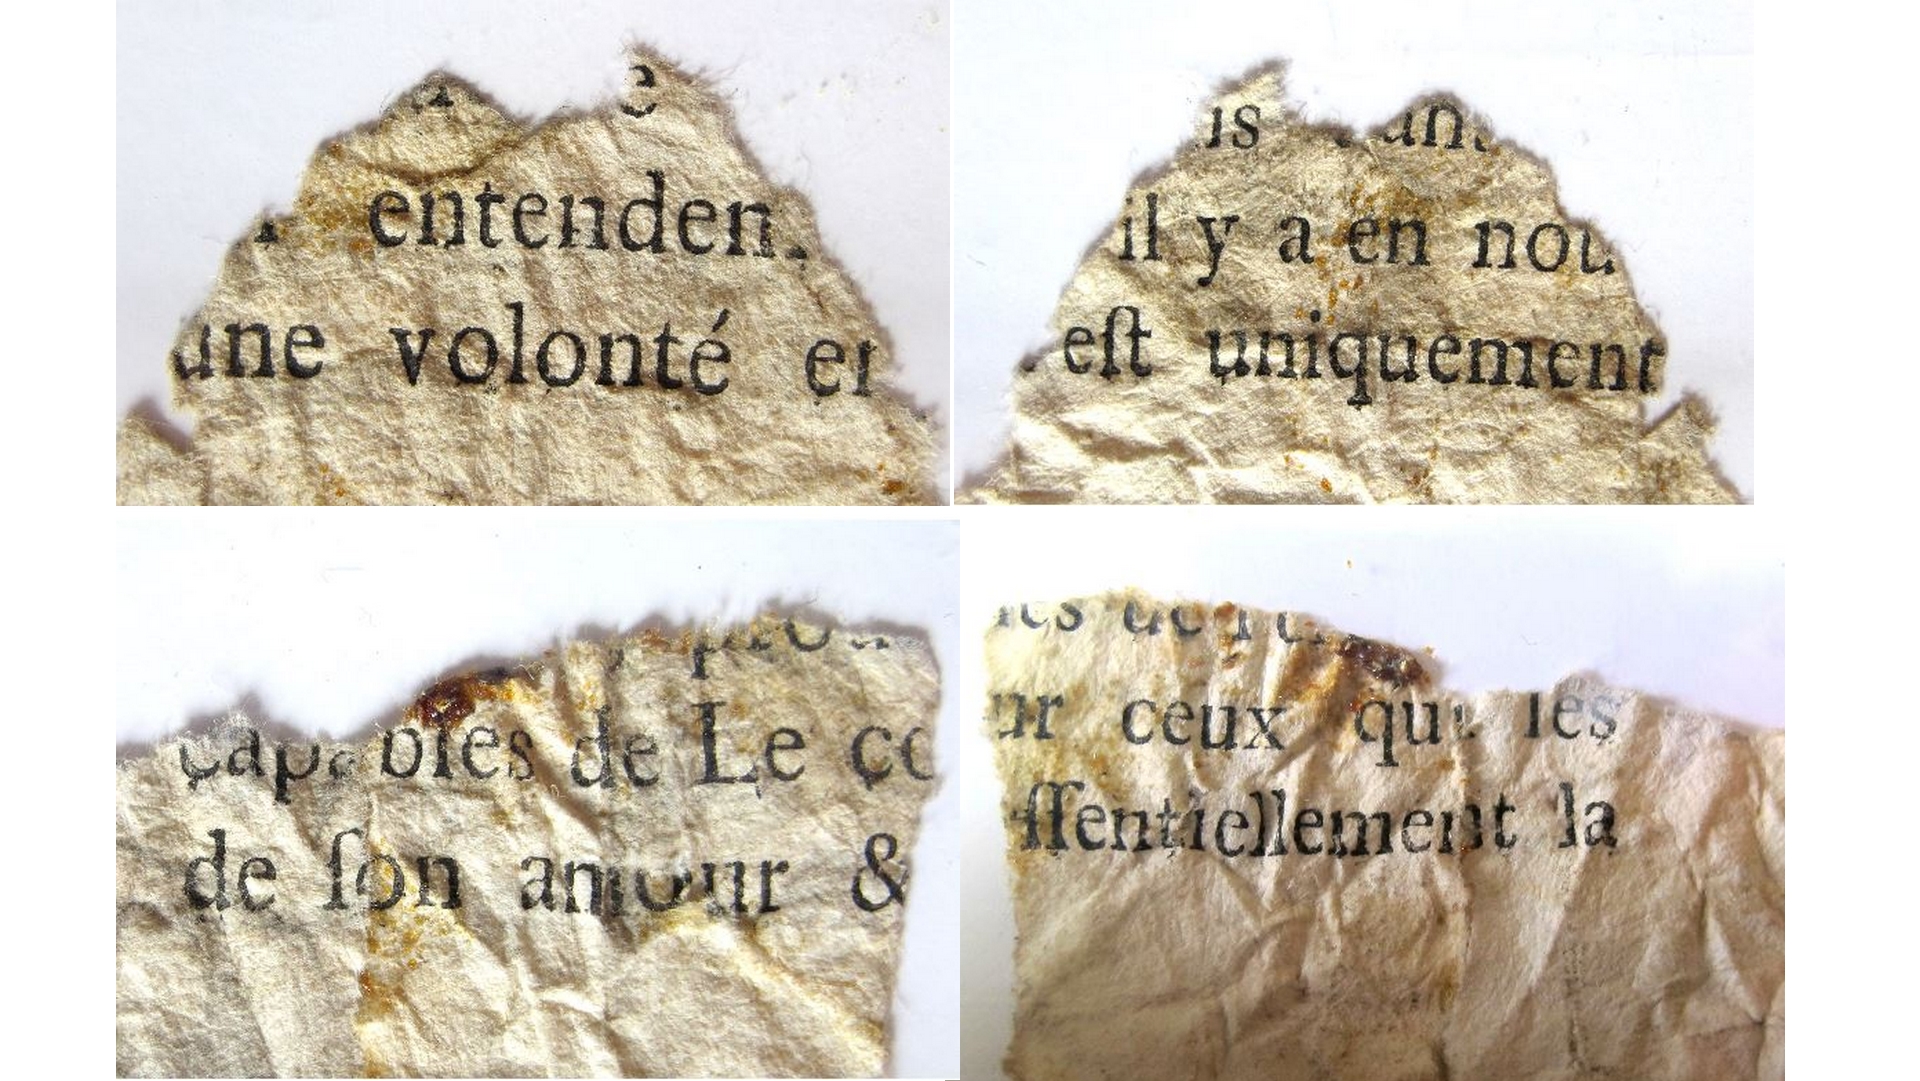 entenden
une volonté en
il y a en nou
eſt uniquement
capables de Le co
de ſon amour &
ur ceux qui les
ſſentiellement la